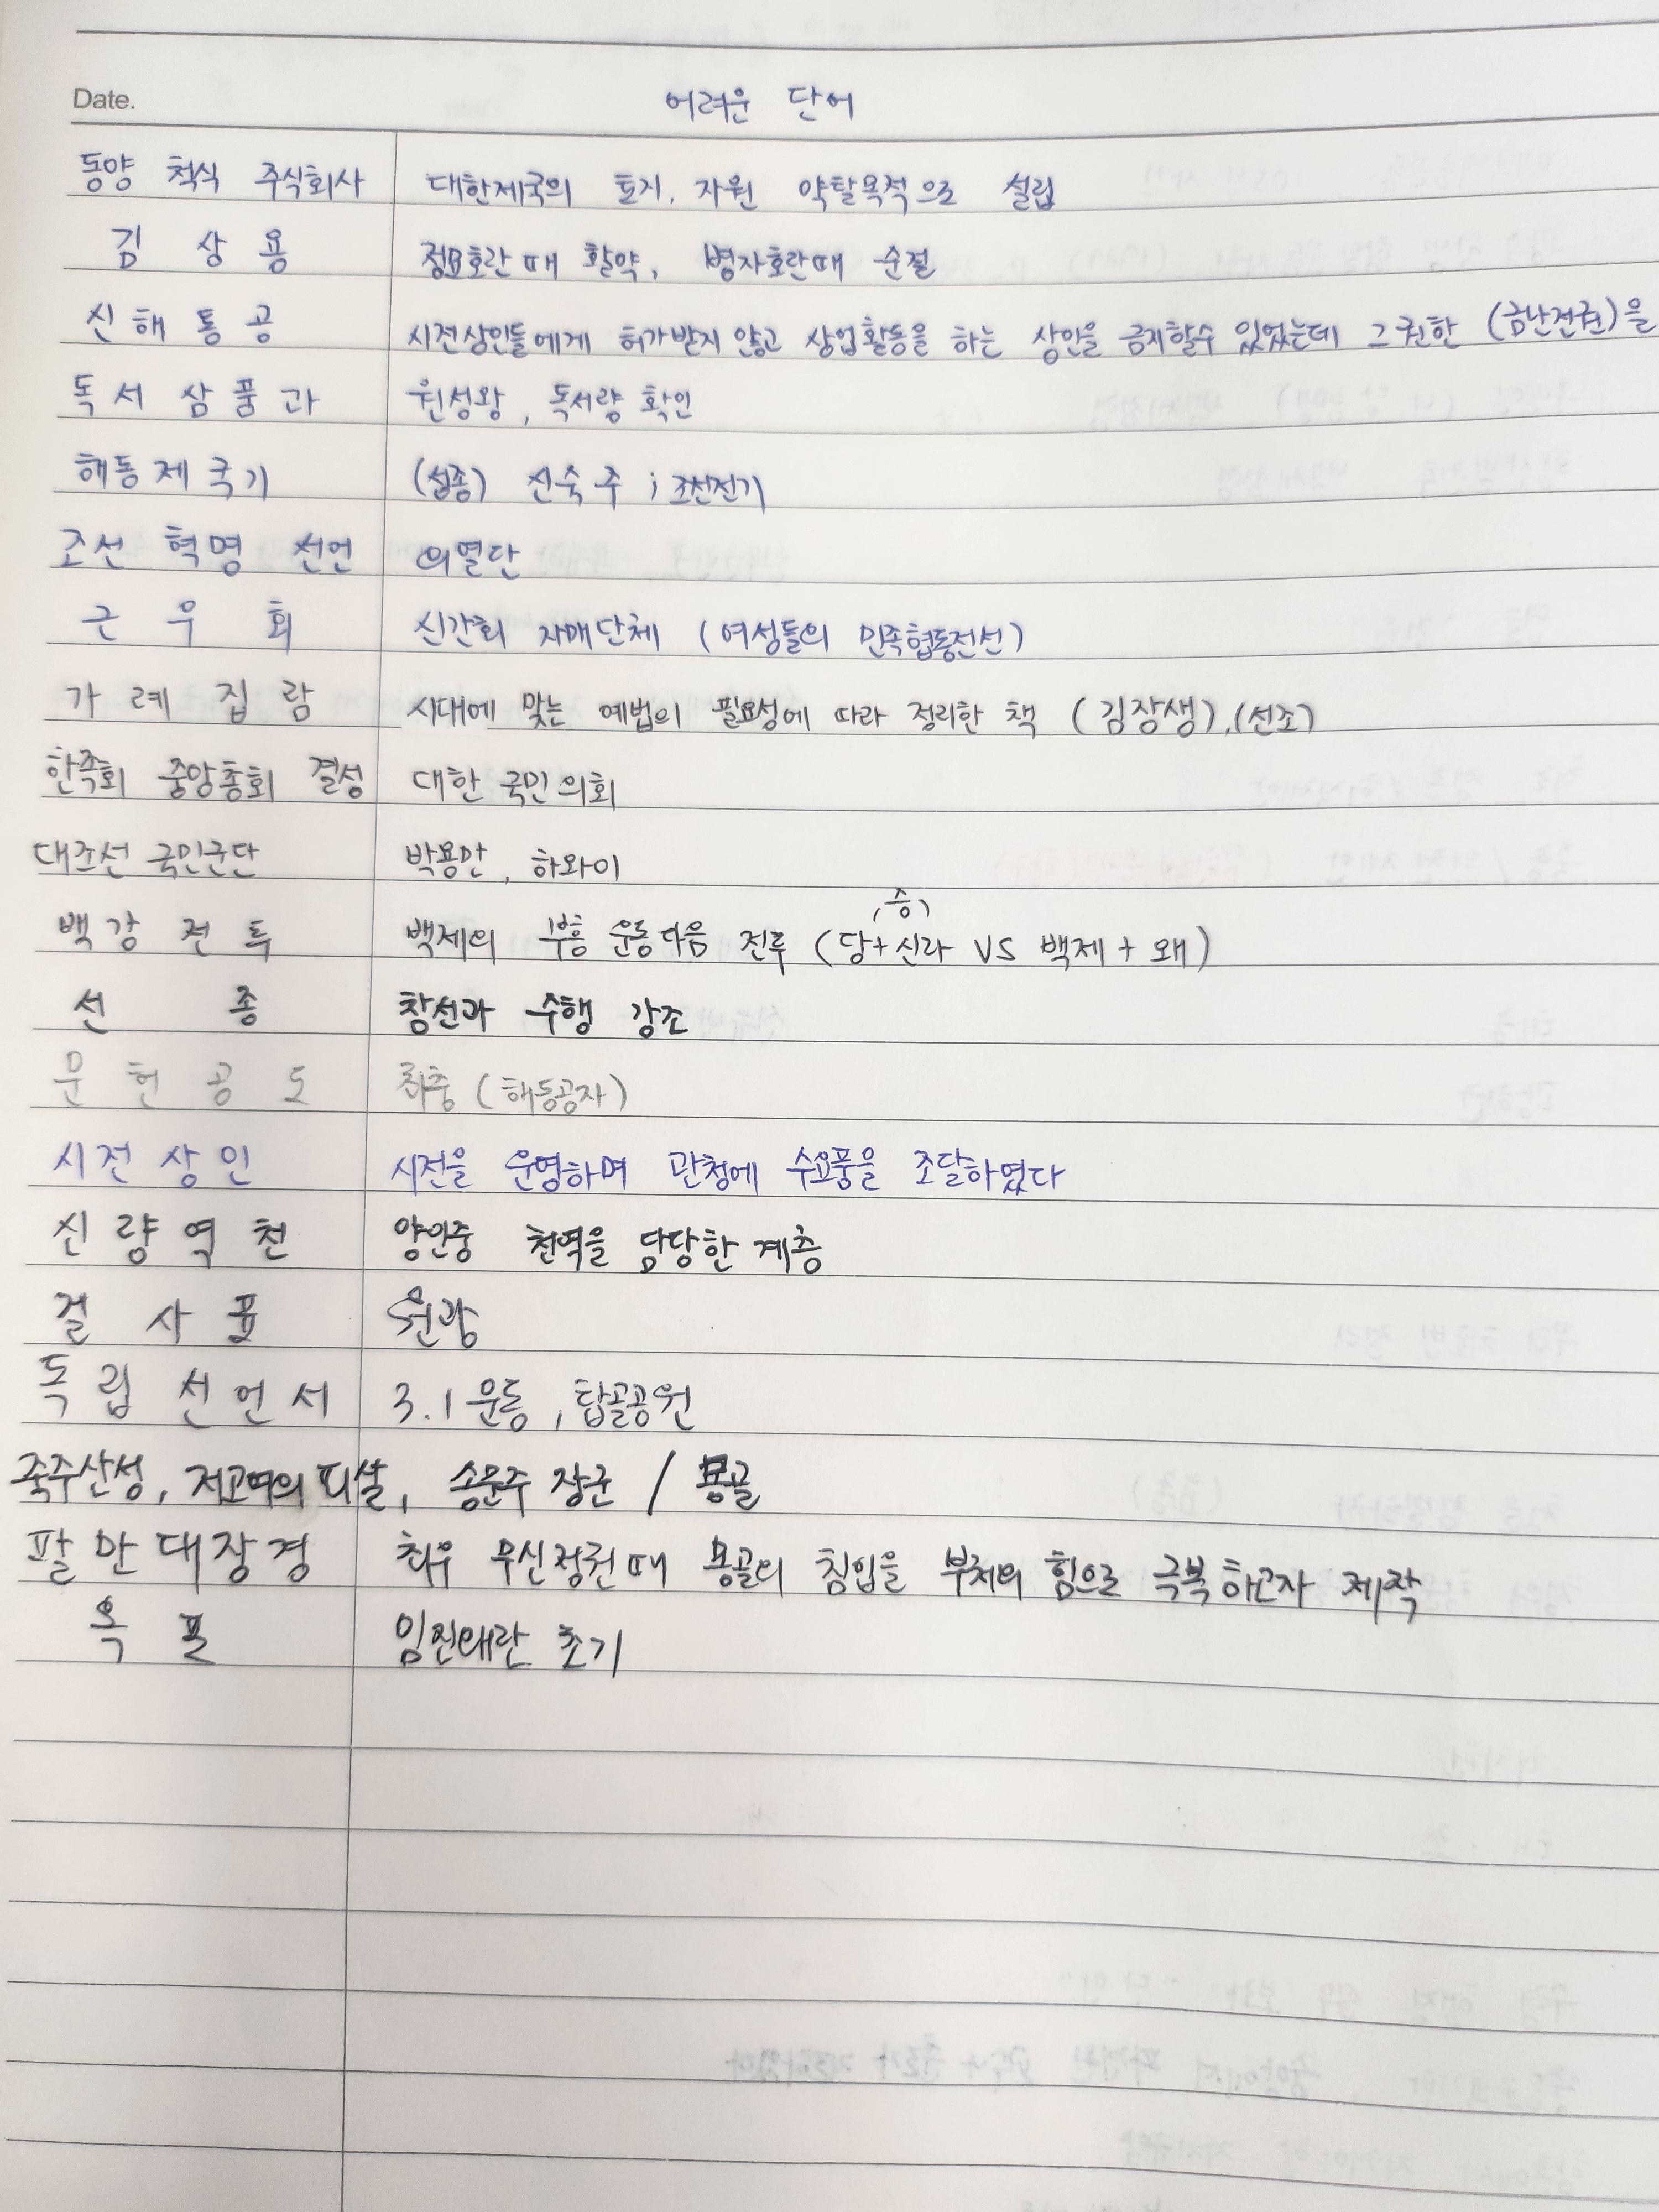 Date. 어려운 단어
동양 척식 주식회사 대한제국의 토지, 자원 약탈목적으로 설립
김상용 정묘호란때 활약, 병자호란때 순절
신해통공 시전상인들에게 허가받지 않고 상업활동을 하는 상인을 금지할수 있었는데 그 권한 (금난전권)을
독서삼품과 원성왕, 독서량 확인
해동제국기 (성종) 신숙주 ; 조선전기
조선 혁명 선언 의열단
근우회 신간회 자매단체 (여성들의 민족협동전선)
가례집람 시대에 맞는 예법의 필요성에 따라 정리한 책 (김장생), (선조)
한족회 중앙총회 결성 대한 국민 의회
대조선 국민군단 박용만, 하와이
백강전투 백제의 부흥 운동 다음 전투 (당+신라 VS 백제 + 왜)
(승)
선종 참선과 수행 강조
문헌공도 최충 (해동공자)
시전상인 시전을 운영하며 관청에 수요품을 조달하였다
신량역천 양인중 천역을 담당한 계층
걸사표 원광
독립선언서 3.1운동, 탑골공원
죽주산성, 저고여의 피살, 송문주 장군 / 몽골
팔만대장경 최우 무신정권때 몽골의 침입을 부처의 힘으로 극복하고자 제작
옥포 임진왜란 초기